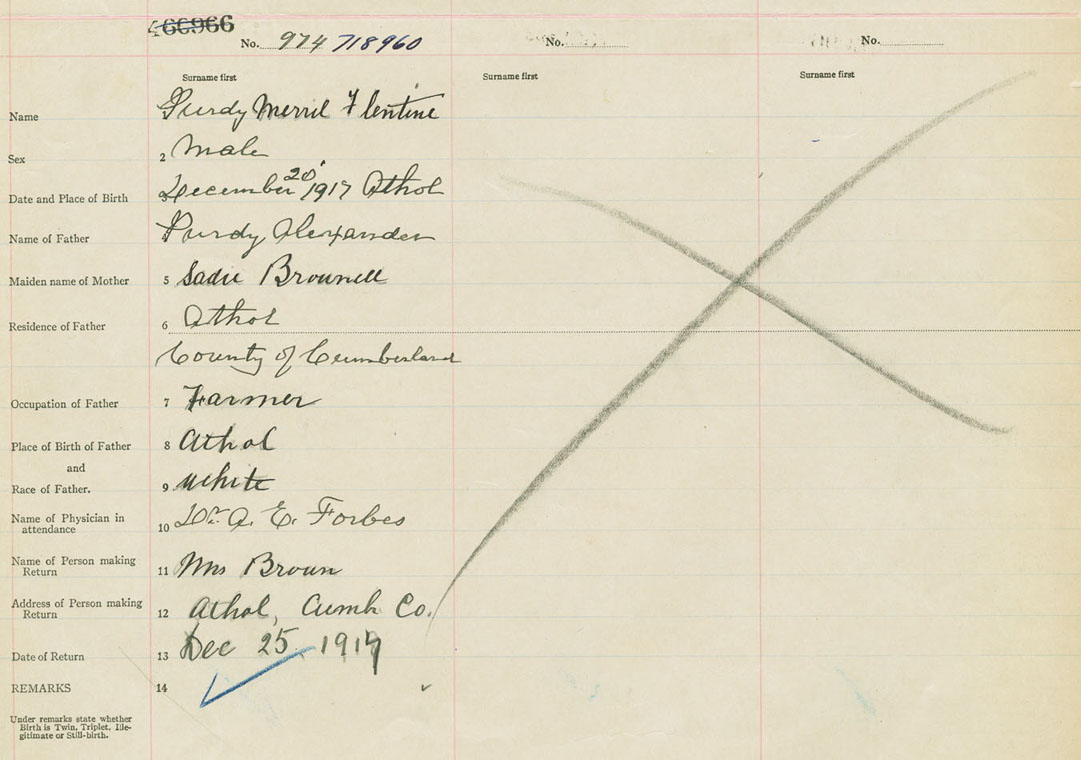 466966
No. 974 718960 No. No.
Surname first Surname first Surname first
Name Purdy Merril Flentine
Sex 2 Male
Date and Place of Birth 3 December 20 1917 Athol
Name of Father Purdy Alexander
Maiden name of Mother 5 Sadie Brownell
Residence of Father 6 Athol
County of Cumberland
Occupation of Father 7 Farmer
Place of Birth of Father 8 Athol
and
Race of Father. 9 White
Name of Physician in
attendance 10 Dr. A. E. Forbes
Name of Person making
Return 11 Mrs Brown
Address of Person making
Return 12 Athol, Cumb Co.
Date of Return 13 Dec 25 1917
REMARKS 14
Under remarks state whether
Birth is Twin, Triplet, Ille-
gitimate or Still-birth.